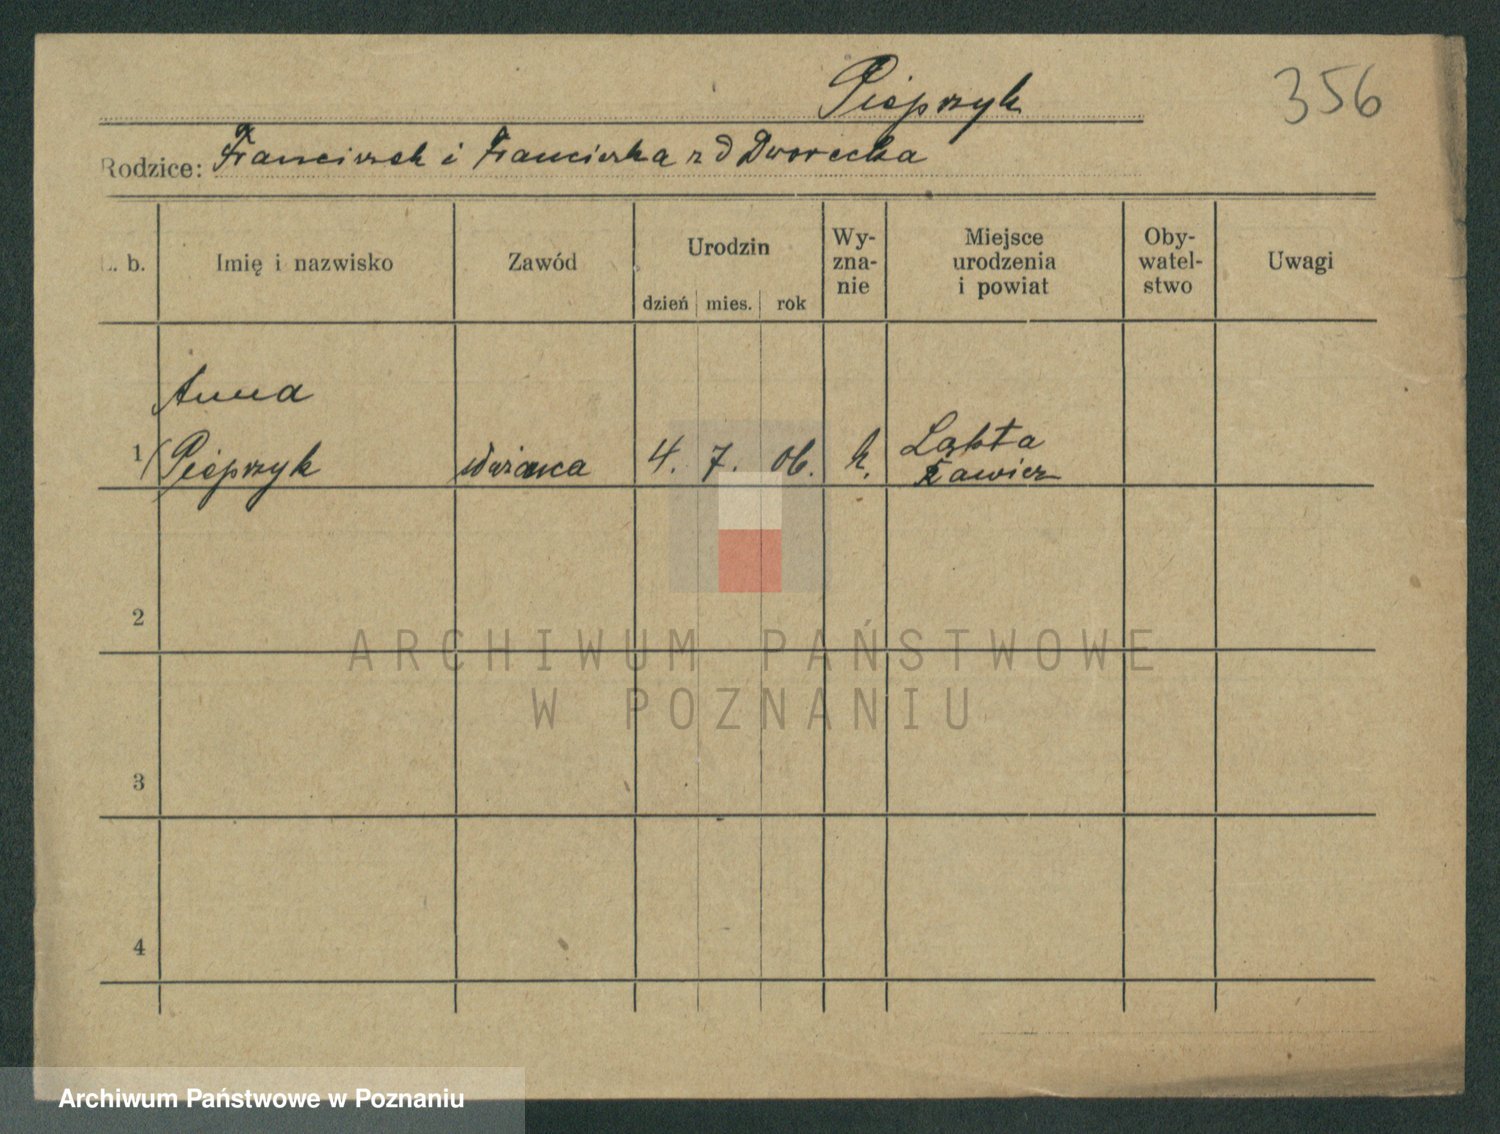 Pieprzyk 356
Rodzice: Franciszek i Franciszka z d Dworecka
L. b. Imię i nazwisko Zawód Urodzin dzień mies. rok Wy-zna-nie Miejsce urodzenia i powiat Oby-watel-stwo Uwagi
Anna
1 Pieprzyk 4. 7. 06. k. Łąkta
Rawicz
2
ARCHIWUM PAŃSTWOWE
W POZNANIU
3
4
Archiwum Państwowe w Poznaniu